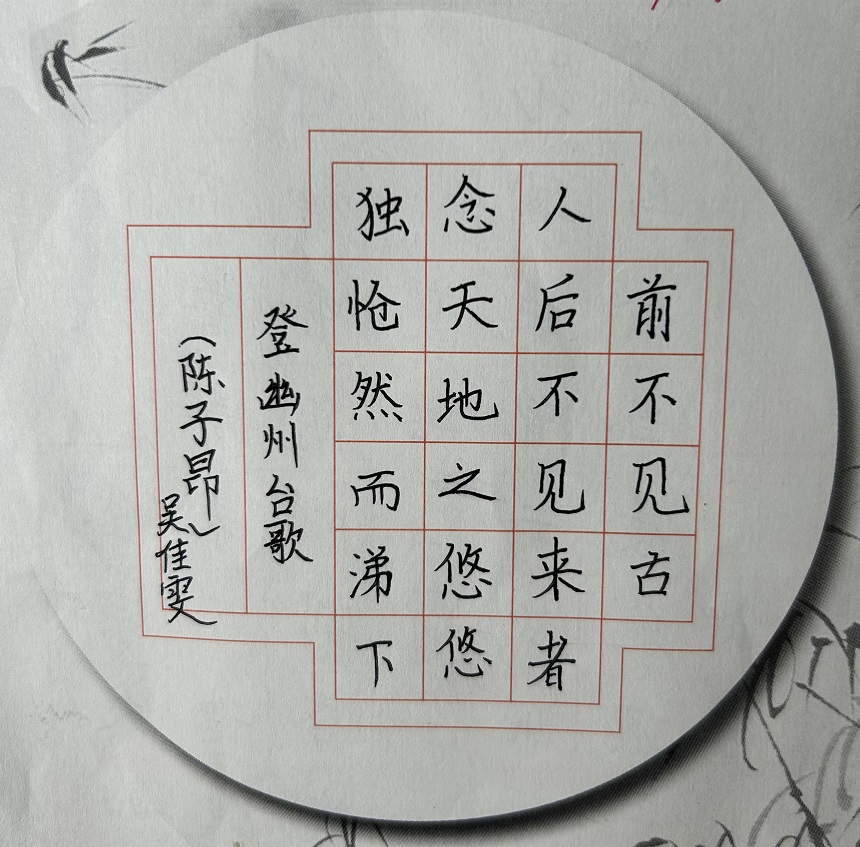 前不见古
人后不见来者
念天地之悠悠
独怆然而涕下
登幽州台歌
（陈子昂）
吴佳雯